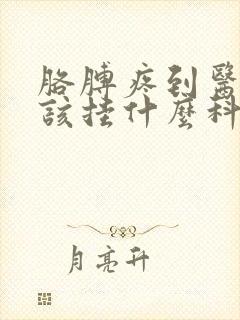 胳膊疼到醫
該挂什麼科
月亮升